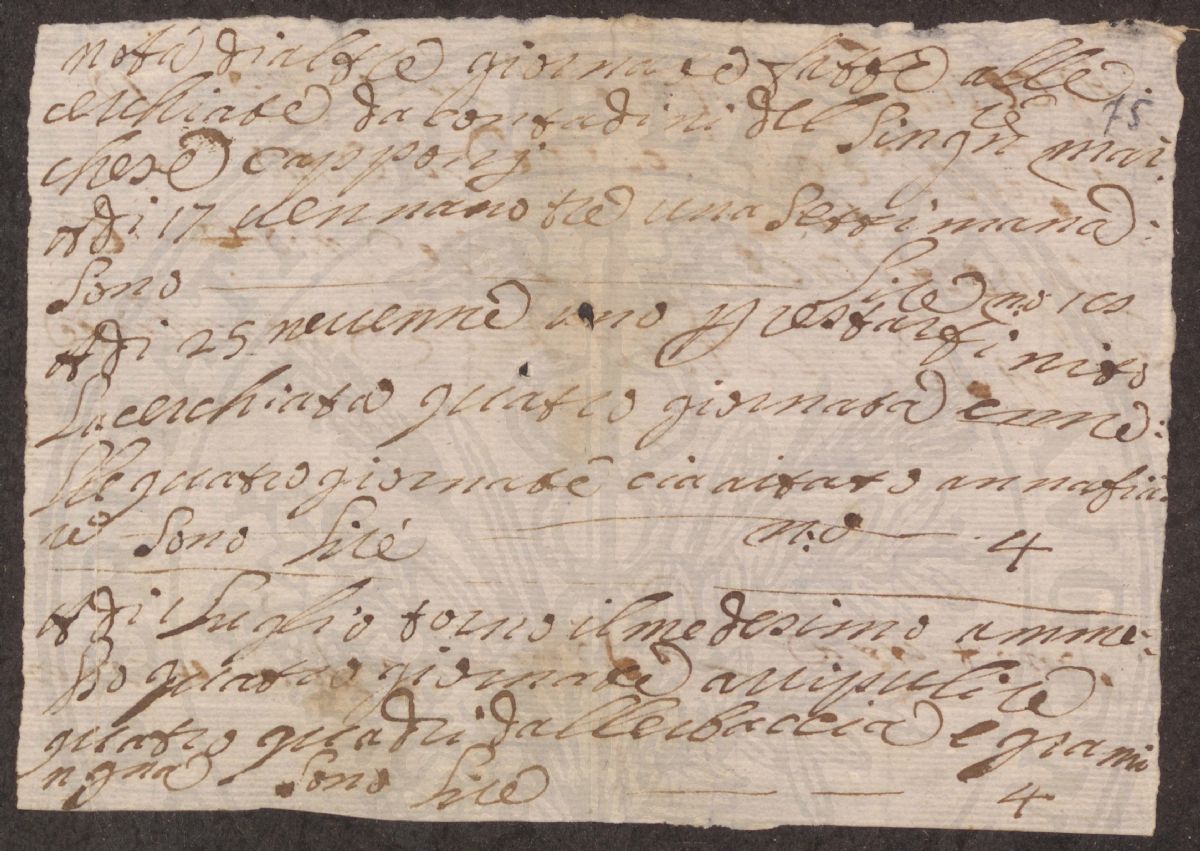 nota dialtre giornate fatte alle
75
cerchiate da contadini del Singre mar:
chese capponj
Adi 17 uennano tre una Settimana:
Sono Lire no
Adi 25 neuenne uno restar finito
Lacerchiata quatro giornata enne:
lle quatro giornate cia aitato annafia
re Sono Lire n:o 4
Adi 1 Luglio torno il medesimo amme:
so quatro giornate a ripulire
quatro quadri dallerbaccia e grami
ngna Sono Lire 4